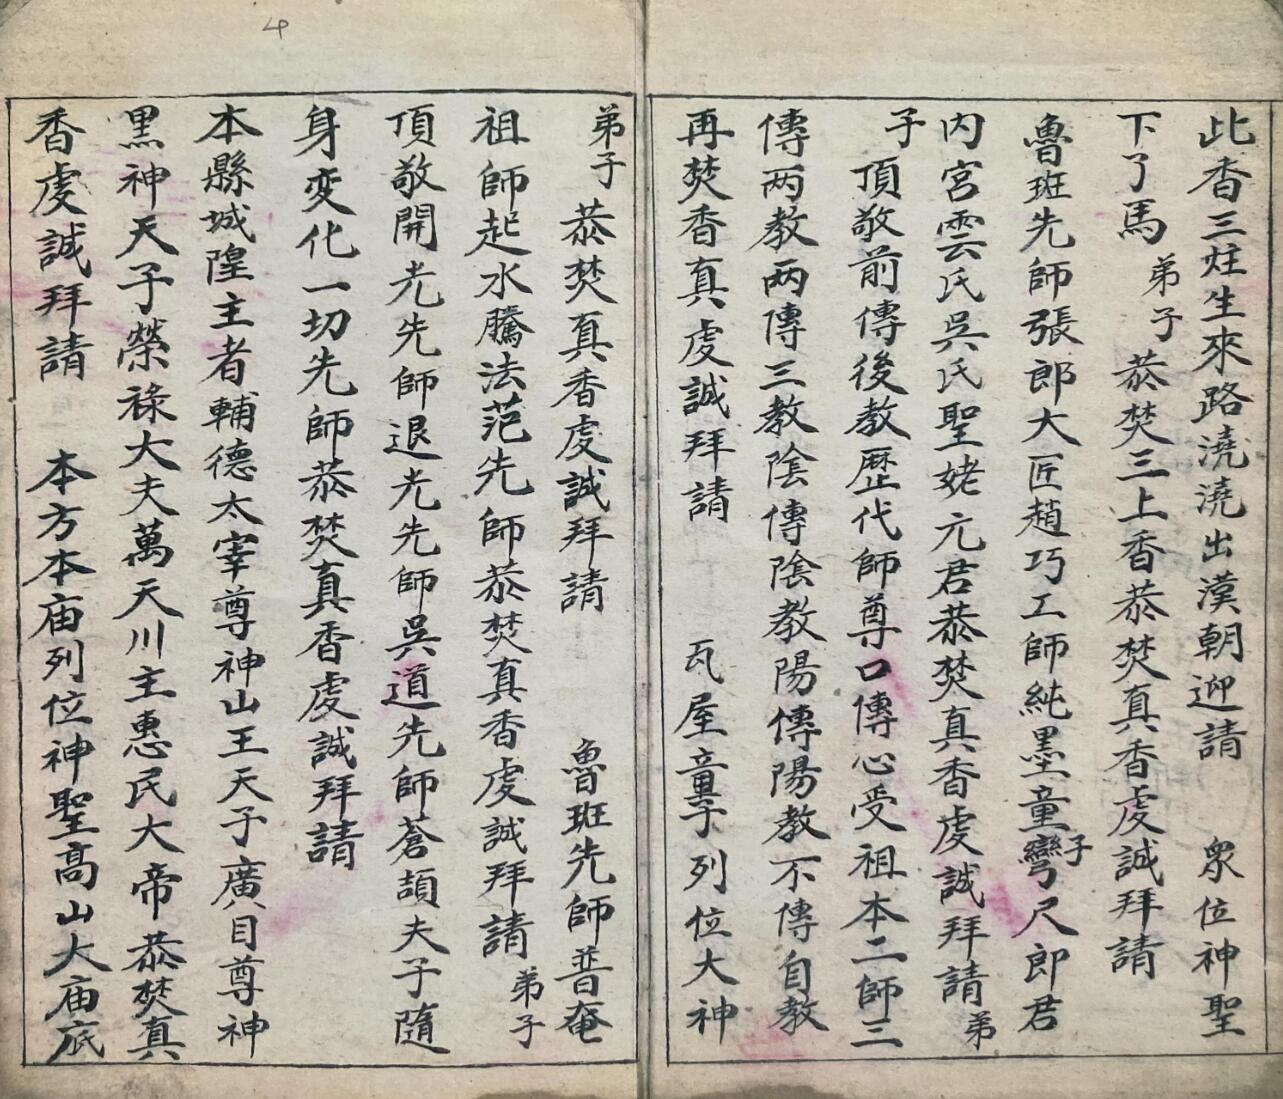 此香三炷生來路澆澆出漢朝迎請　眾位神聖
下了馬弟子恭焚三上香恭焚真香虔誠拜請
魯班先師張郎大匠趙巧工師純墨童子彎尺郎君
内宮雲氏吳氏聖姥元君恭焚真香虔誠拜請弟
子頂敬前傳後教歷代師尊口傳心受祖本二師三
傳两教两傳三教陰傳陰教陽傳陽教不傳自教
再焚香真虔誠拜請　瓦屋童子列位大神
弟子恭焚真香虔誠拜請　魯班先師普奄
祖師起水騰法范先師恭焚真香虔誠拜請弟子
頂敬開光先師退光先師吳道先師蒼頡夫子隨
身变化一切先師恭焚真香虔誠拜請
本縣城隍主者輔德太宰尊神山王天子廣目尊神
黑神天子榮祿大夫萬天川主惠民大帝恭焚真
香虔誠拜請　本方本庙列位神聖高山大庙底
4